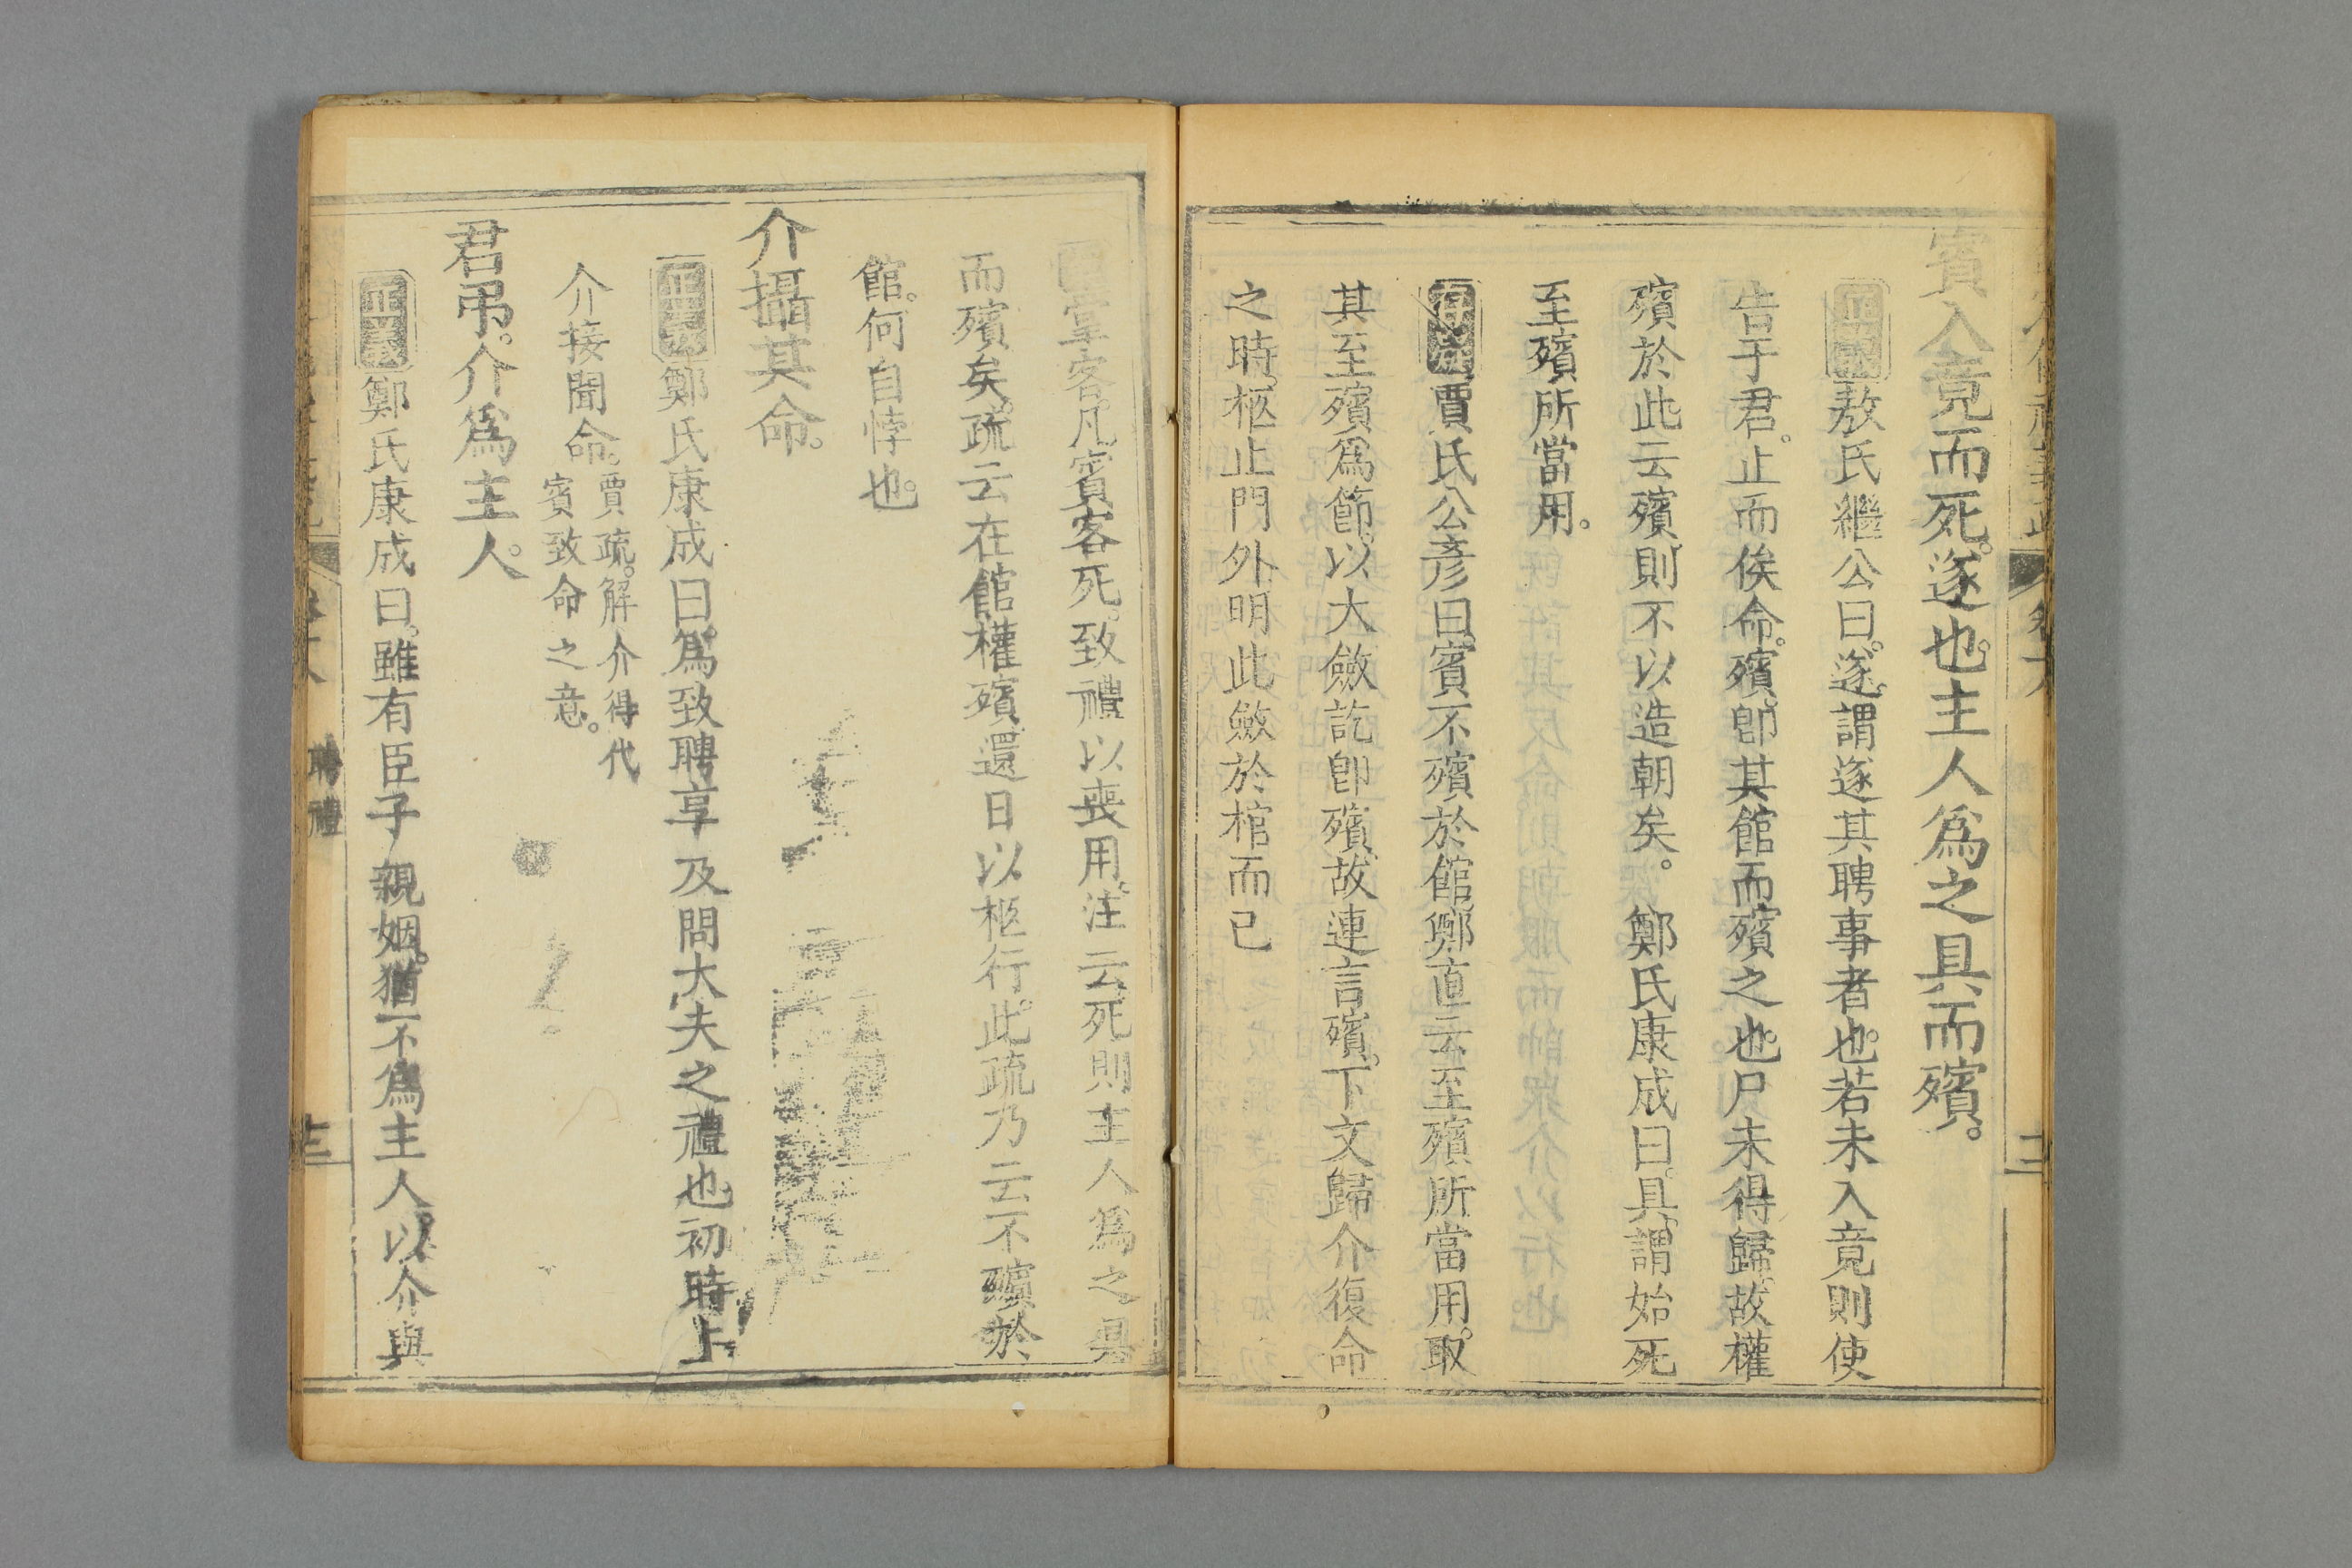 賓入竟而死。遂也。主人爲之具而殯。
正義敖氏繼公曰。遂。謂遂其聘事者也。若未入竟則使
告于君。止而俟命。殯。卽其館而殯之也。尸未得歸。故權
殯於此。云殯。則不以造朝矣。 鄭氏康成曰。具。謂始死
至殯所當用。
存疑賈氏公彥曰。賓不殯於館。鄭直云至殯所當用。取
其至殯爲節。以大斂訖卽殯。故連言殯。下文歸介復命
之時。柩止門外。明此斂於棺而已
掌客。凡賓客死。致禮以喪用。注云死則主人爲之具
而殯矣。疏云在館權殯。還日以柩行。此疏乃云不殯於
館。何自悖也。
介攝其命。
正義鄭氏康成曰。爲致聘享及問大夫之禮也。初時上
介接聞命。賈疏。解介得代賓致命之意。
君弔。介爲主人。
正義鄭氏康成曰。雖有臣子親姻。猶不爲主人。以介與
聘禮